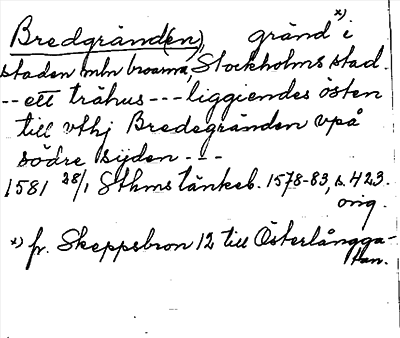 Bredgränd(en), gränd x) i
staden mln broarna, Stockholms stad.
-- ett trähus --- liggiendes östen
till vthj Bredegränden vpå
södre sijden ---
1581 28/1 Sthms tänkeb. 1578-83, s. 423.
orig.
x) fr. Skeppsbron 12 till Österlångga-
tan.